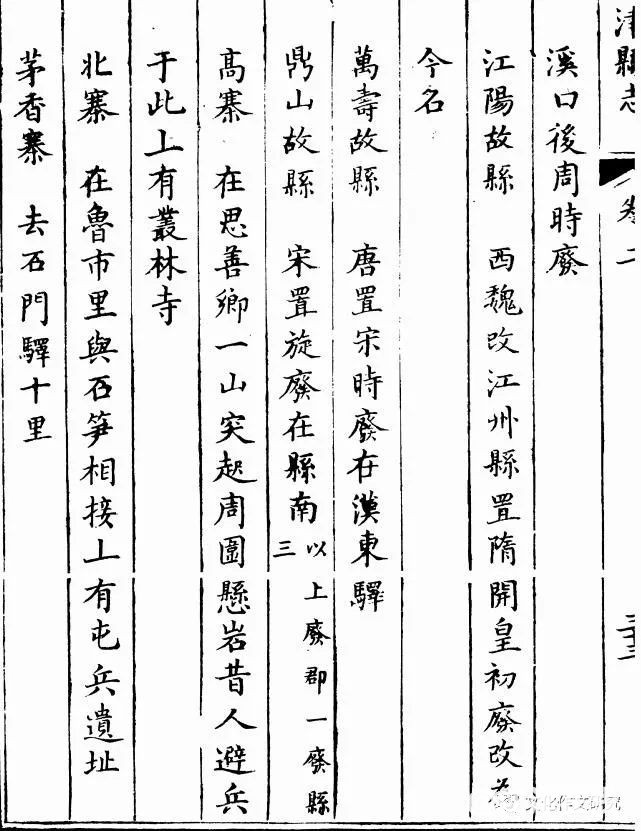 津縣志
卷二
三十三
溪口後周時廢
江陽故縣 西魏改江州縣置隋開皇初廢改為
今名
萬壽故縣 唐置宋時廢在漢東驛
鼎山故縣 宋置旋廢在縣南以上廢郡一廢縣三
高寨 在思善鄉一山突起周圍懸岩昔人避兵
于此上有叢林寺
北寨 在魯市里與石笋相接上有屯兵遺址
茅香寨 去石門驛十里